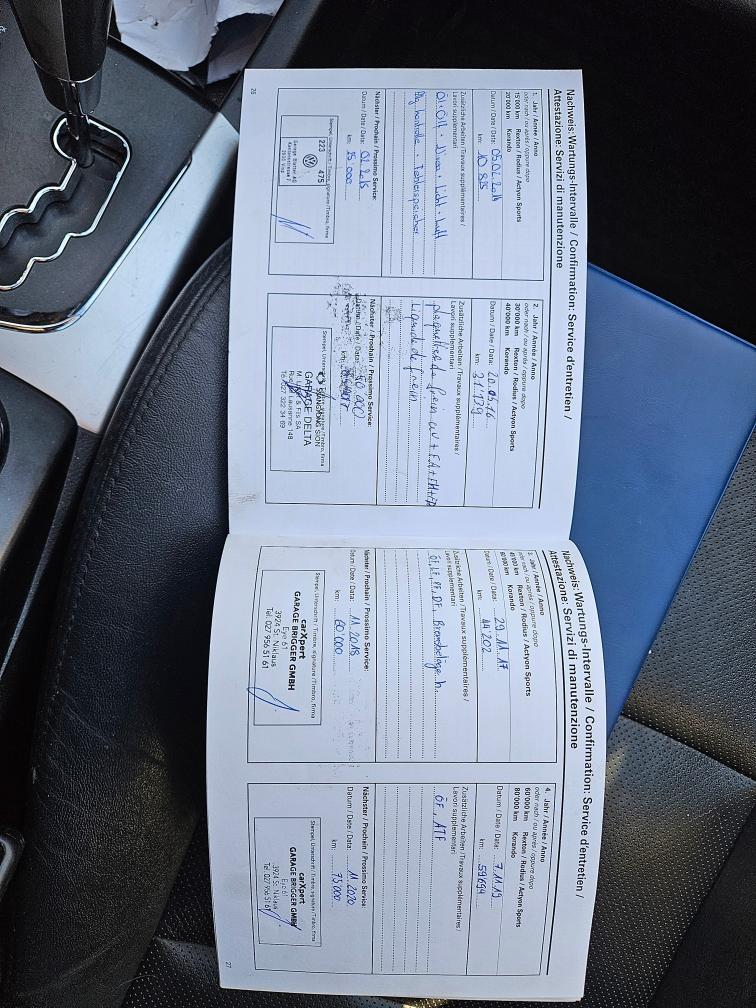 Nachweis: Wartungs-Intervalle / Confirmation: Service d'entretien /
Attestazione: Servizi di manutenzione
1. Jahr / Année / Anno
oder nach / ou après / oppure dopo
15'000 km Rexton / Rodius / Actyon Sports
20'000 km Korando
Datum / Date / Data: 05.02.2014
km: 10'835
Zusätzliche Arbeiten / Travaux supplémentaires /
Lavori supplementari
Nächster / Prochain / Prossimo Service:
Datum / Date / Data: 02.2015
km: 25'000
Stempel, Unterschrift / Timbre, signature / Timbro, firma
223 475
3930 Visp
26
2. Jahr / Année / Anno
oder nach / ou après / oppure dopo
30'000 km Rexton / Rodius / Actyon Sports
40'000 km Korando
Datum / Date / Data: 20.05.16
km: 31'179
Zusätzliche Arbeiten / Travaux supplémentaires /
Lavori supplementari
plaquettes de frein
Liquide de frein
Nächster / Prochain / Prossimo Service:
Datum / Date / Data:
km:
Stempel, Unterschrift / Timbre, signature / Timbro, firma
SSANGYONG SION
GARAGE DELTA
& Fils SA
Lausanne 148
Tél. 027 322 34 69
Nachweis: Wartungs-Intervalle / Confirmation: Service d'entretien /
Attestazione: Servizi di manutenzione
3. Jahr / Année / Anno
oder nach / ou après / oppure dopo
45'000 km Rexton / Rodius / Actyon Sports
60'000 km Korando
Datum / Date / Data: 29.11.17
km: 44'202
Zusätzliche Arbeiten / Travaux supplémentaires /
Lavori supplementari
ÖF, LF, PF, DF, Bremsbeläge h.
Nächster / Prochain / Prossimo Service:
Datum / Date / Data: 11.2018
km: 60'000
Stempel, Unterschrift / Timbre, signature / Timbro, firma
carXpert
GARAGE BRIGGER GMBH
Eye 61
3924 St. Niklaus
Tel. 027 956 51 61
4. Jahr / Année / Anno
oder nach / ou après / oppure dopo
60'000 km Rexton / Rodius / Actyon Sports
80'000 km Korando
Datum / Date / Data: 7.11.19
km: 59'694
Zusätzliche Arbeiten / Travaux supplémentaires /
Lavori supplementari
ÖF, ATF
Nächster / Prochain / Prossimo Service:
Datum / Date / Data: 11.2020
km: 75'000
Stempel, Unterschrift / Timbre, signature / Timbro, firma
carXpert
GARAGE BRIGGER GMBH
Eye 61
3924 St. Niklaus
Tel. 027 956 51 61
27